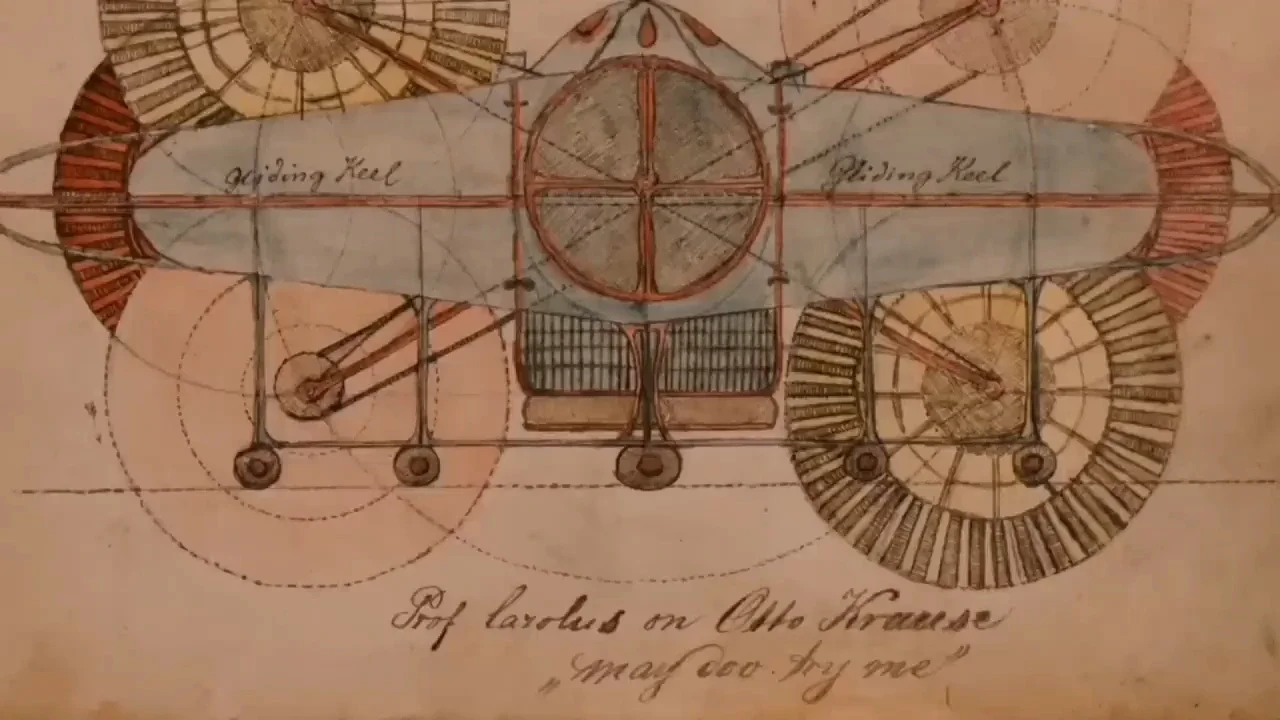 Gliding Keel
Gliding Keel
Prof Carolus on Otto Krause
„may doo. try me”